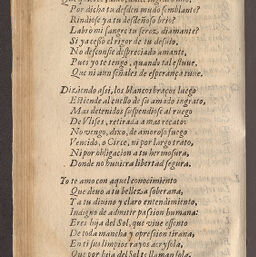 Por dicha tu desden mudo semblante?
Rindiose ya tu desdeñoso brio?
Labrò mi sangre tu feroz diamante?
Si ya cessò el rigor de tu desuio,
No desconfie despreciado amante,
Pues yo te tengo, quando tal estuue,
Que ni aun señales de esperança tuue.
Diziendo assi, los blancos braços luego
Estiende al cuello de su amado ingrato,
Mas detenidos suspendiose al ruego
De Vlises, retirada a mas recato:
No vengo, dixo, de amoroso fuego
Vencido, o Circe, ni por largo trato,
Ni por obligacion a tu hermosura,
Donde no huuiera libertad segura.
Yo te amo con aquel conocimiento
Que deuo a tu belleza soberana,
Ya tu diuino y claro entendimiento,
Indigno de admitir passion humana:
Eres hija del Sol, que viue essento
De toda mancha y opression tirana,
En ti sus limpios rayos acrysola,
Que por hija del Sol te llaman sola.